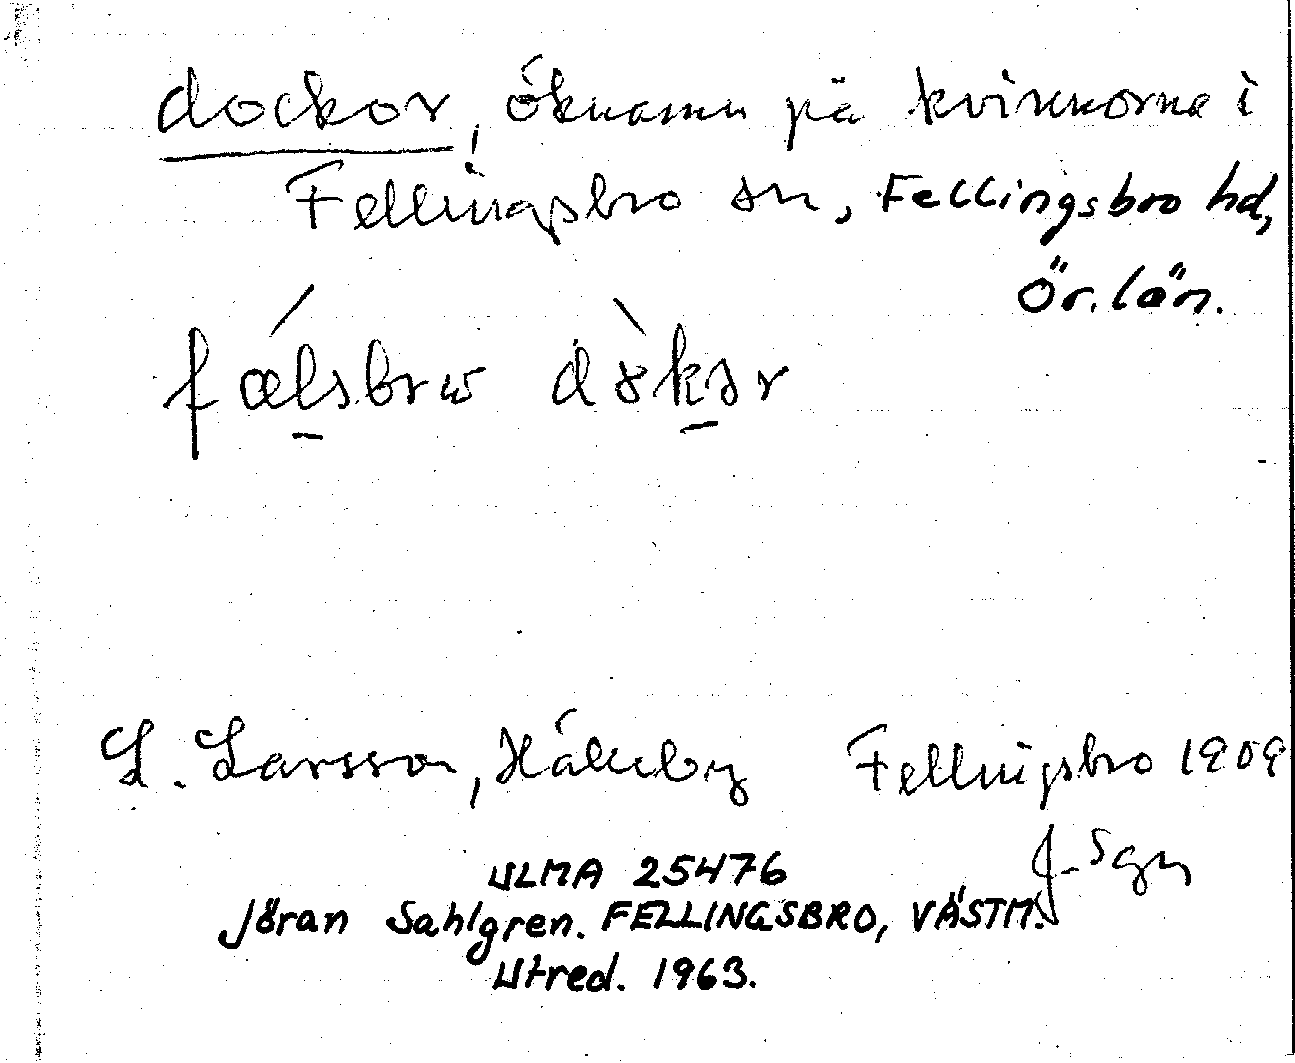 dockor, öknamn på kvinnorna i
Fellingsbro sn, Fellingsbro hd,
Ör. län.
fælsbrω
L. Larsson, Fellingsbro 1909
J. Sgn
ULMA 25476
Jöran Sahlgren. FELLINGSBRO, VÄSTM.
Utred. 1963.